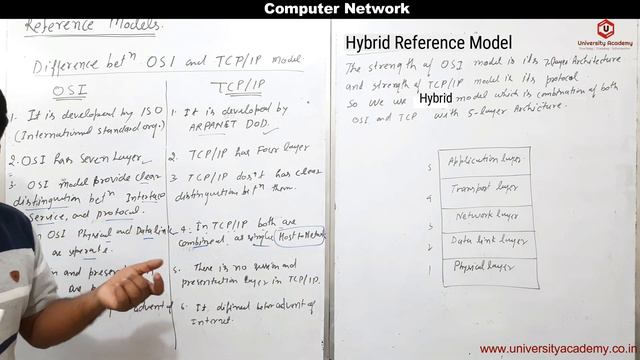 Computer Network
Reference Models.
Difference betn OSI and TCP/IP model
OSI
1. It is developed by ISO
(International standard org.)
2. OSI has Seven Layer
3. OSI model provide clear
distinguition betn Interface
Service, and protocol.
OSI Physical and Data link
as seperate.
and present
are
advent of
TCP/IP
1. It is developed by
ARPANET DoD.
2. TCP/IP has Four layer
3. TCP/IP dos't has clear
distinguition betn them.
4. In TCP/IP both are
combined as single Host to Network
5. There is no session and
presentation layer in TCP/IP.
6. It defined advent of
Internet.
University Academy
Hybrid Reference Model
The strength of OSI model is its 7-layer Architecture
and strength of TCP/IP model is its protocol.
So we use Hybrid model which is combination of both
OSI and TCP with 5-layer Archicture.
5 Application layer
4 Transport layer
3 Network layer
2 Data link layer
1 Physical layer
www.university.academy.co.in